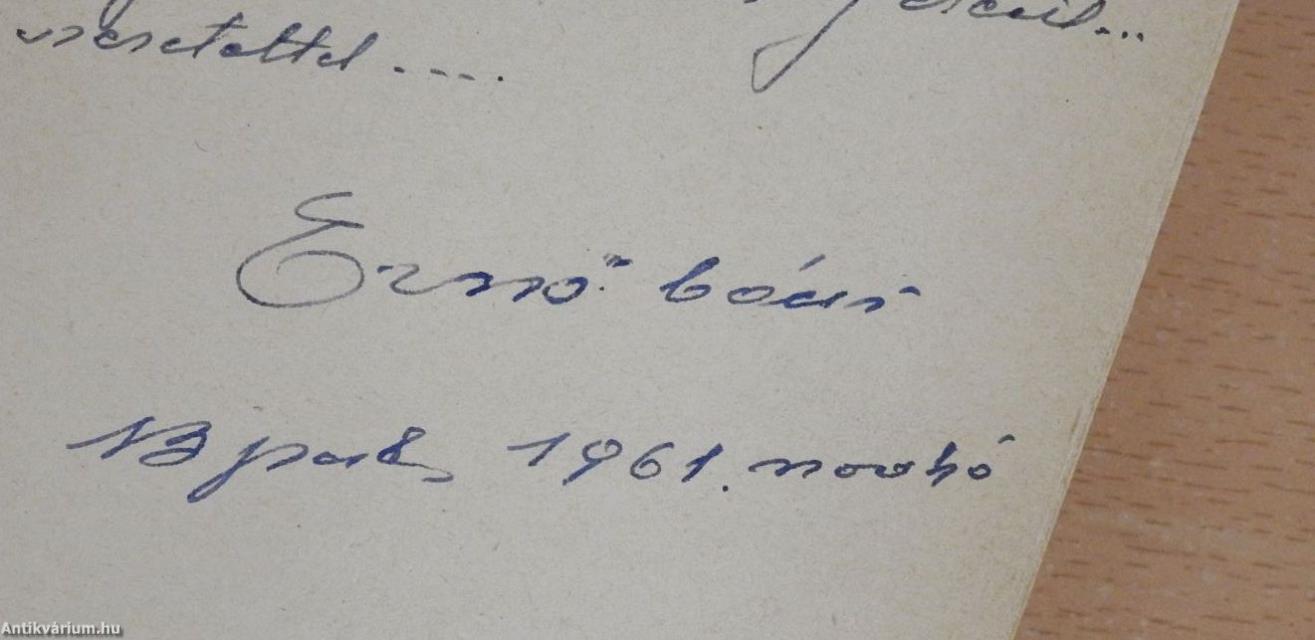 szeretettel ....
Ernő bácsi
Bpest, 1961. nov hó
Antikvárium.hu